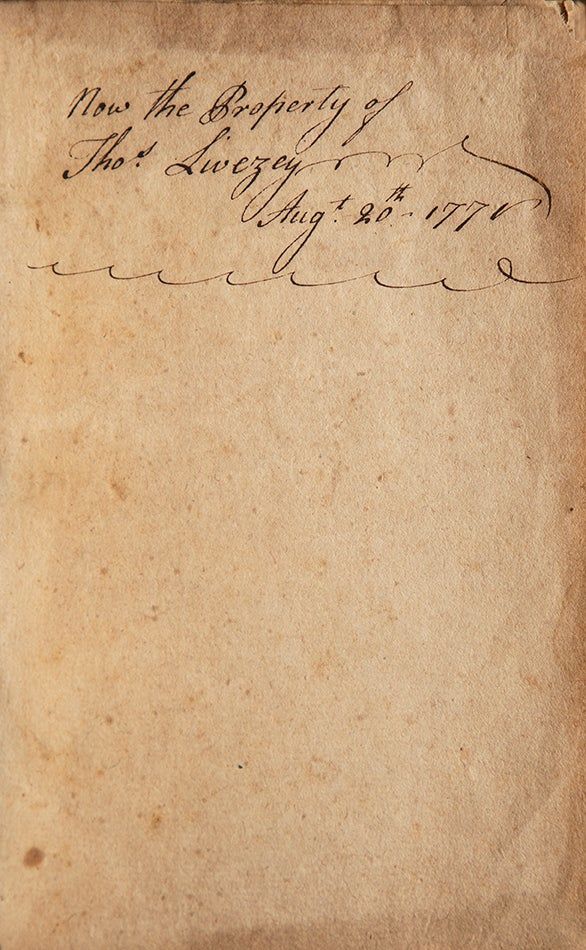 Now the Property of
Thos. Livezey
Augt. 20th. 1771